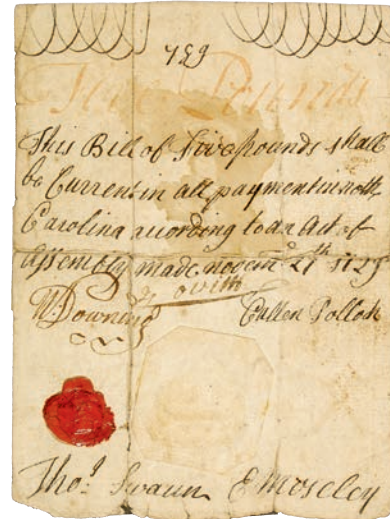 759
Five Pounds
This Bill of Five Pounds shall
be Current in all payments in North
Carolina according to an Act of
Assembly made novem 27th 1729
W Downing
Cullen Pollok
Thos Swann E Moseley